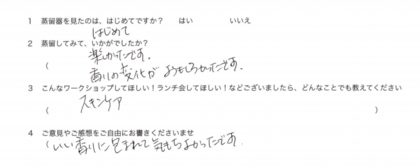 1 蒸留器を見たのは、はじめてですか？　はい　　いいえ
はじめて
2 蒸留してみて、いかがでしたか？
楽しかったです。
（香りの変化がおもしろかったです。
3 こんなワークショップしてほしい！ランチ会してほしい！などございましたら、どんなことでも教えてください
（スキンケア　　　　）
4 ご意見やご感想をご自由にお書きくださいませ
（いい香りに包まれて気もちよかったです。